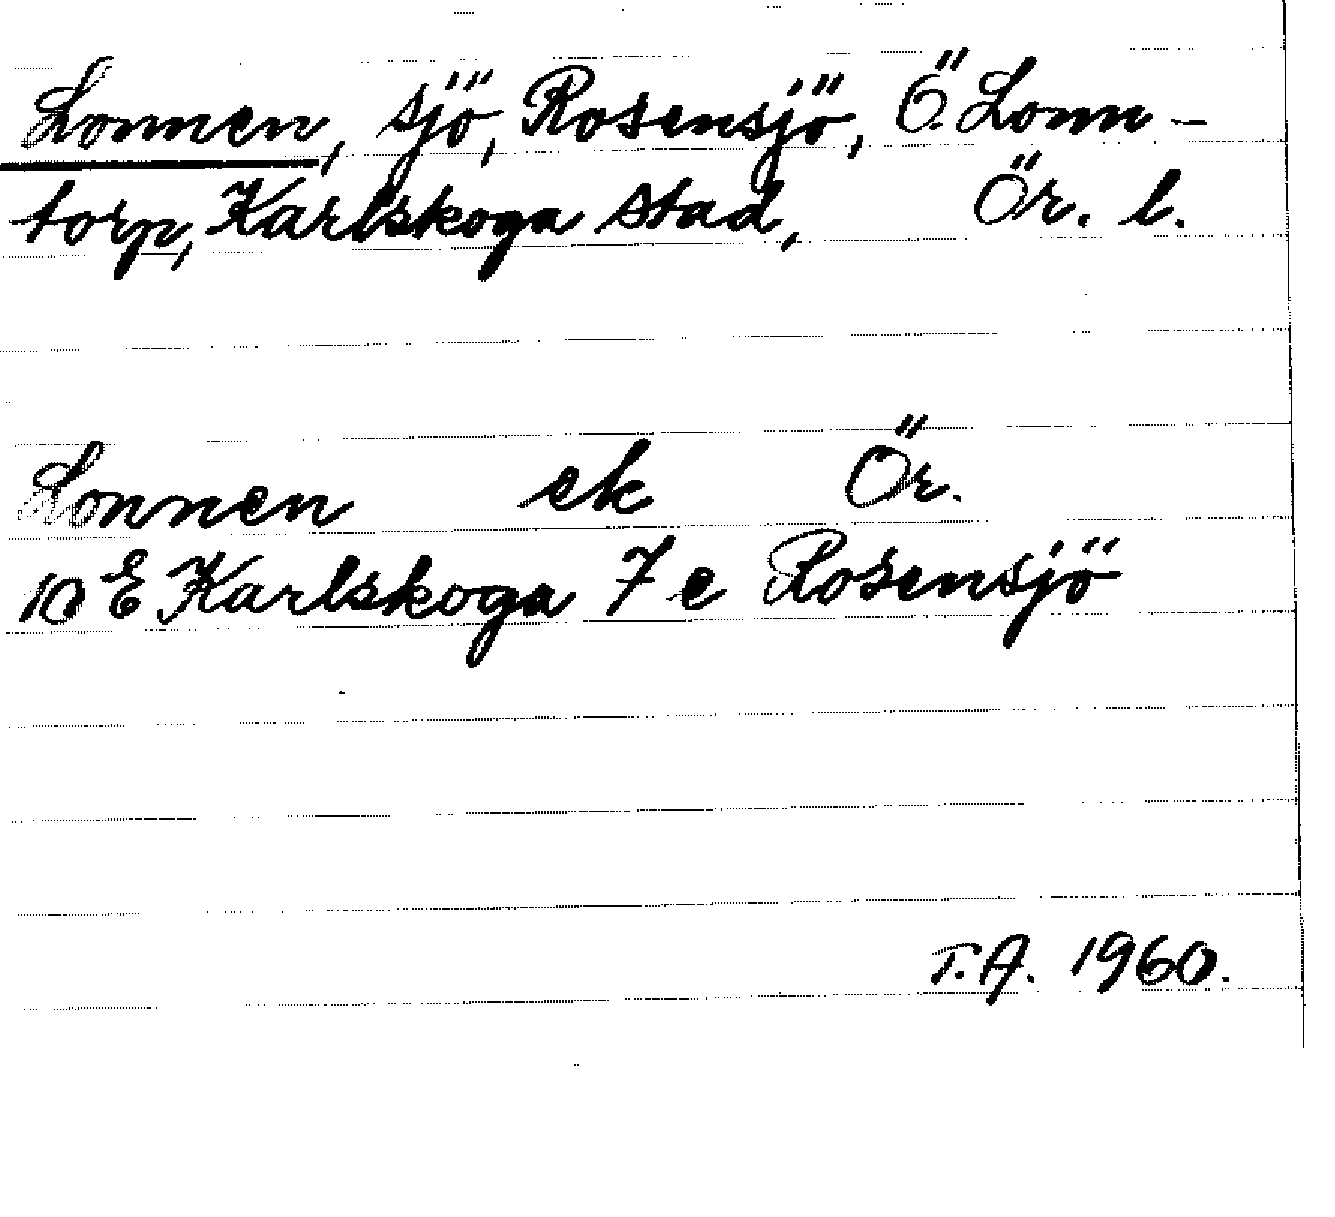 Lonnen, sjö, Rosensjö, Ö. Lonn-
torp, Karlskoga stad, Ör. l.
Lonnen ek Ör.
10 E Karlskoga 7 e Rosensjö
T.A. 1960.